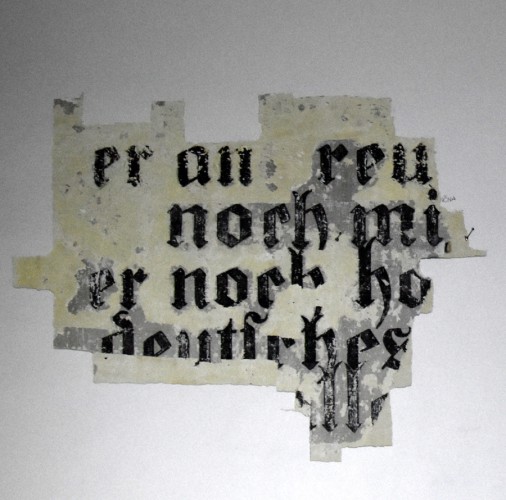 er an reu
noch mi
er noch ho
deutsches
alle